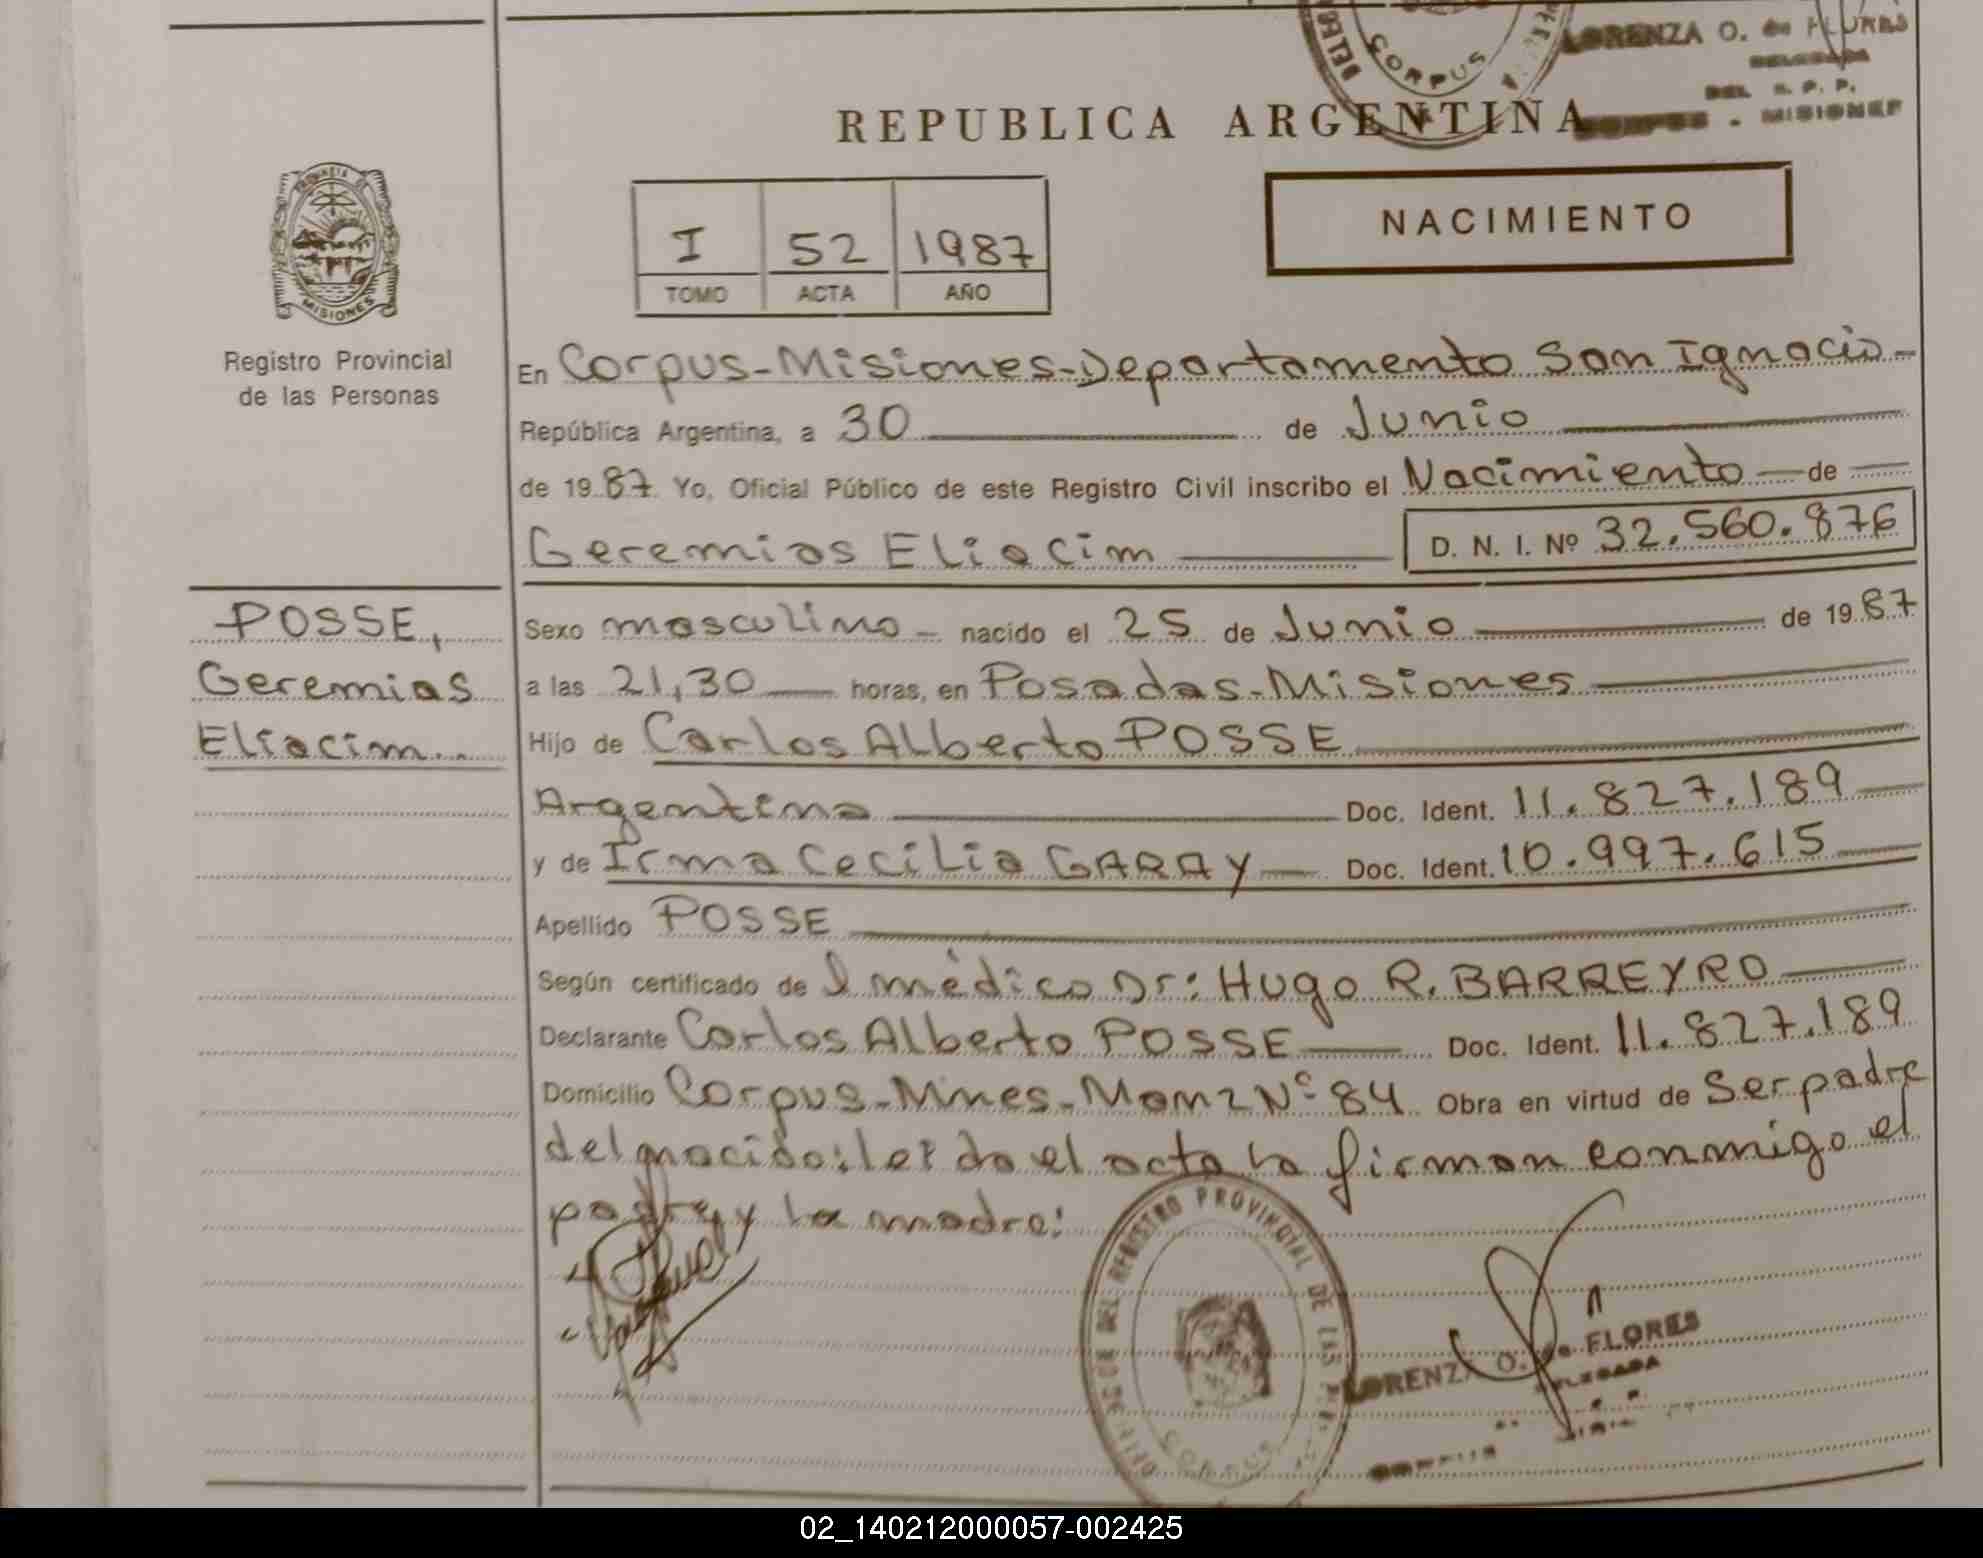 CORPUS
LORENZA O. de FLORES
DELEGADA
DEL R. P. P.
CORPUS - MISIONES
REPUBLICA ARGENTINA
PROVINCIA DE
MISIONES
Registro Provincial
de las Personas
I 52 1987
TOMO ACTA AÑO
NACIMIENTO
En Corpus-Misiones-Departamento San Ignacio-
República Argentina, a 30 de Junio
de 19 87. Yo, Oficial Público de este Registro Civil inscribo el Nacimiento de
Geremias Eliacim D. N. I. Nº 32.560.876
POSSE,
Geremias
Eliacim..
Sexo masculino - nacido el 25 de Junio de 19 87
a las 21,30 horas, en Posadas-Misiones
Hijo de Carlos Alberto POSSE
Argentina Doc. Ident. 11.827.189
y de Irma Cecilia GARAY Doc. Ident. 10.997.615
Apellido POSSE
Según certificado de l médico Dr: Hugo R. BARREYRO
Declarante Carlos Alberto POSSE Doc. Ident. 11.827.189
Domicilio Corpus-Mnes-Manz Nº 84 Obra en virtud de Ser padre
del nacido: leida el acta la firman conmigo el
padre y la madre:
DEL REGISTRO PROVINCIAL DE LAS
CORPUS
LORENZA O. de FLORES
DELEGADA
02_140212000057-002425